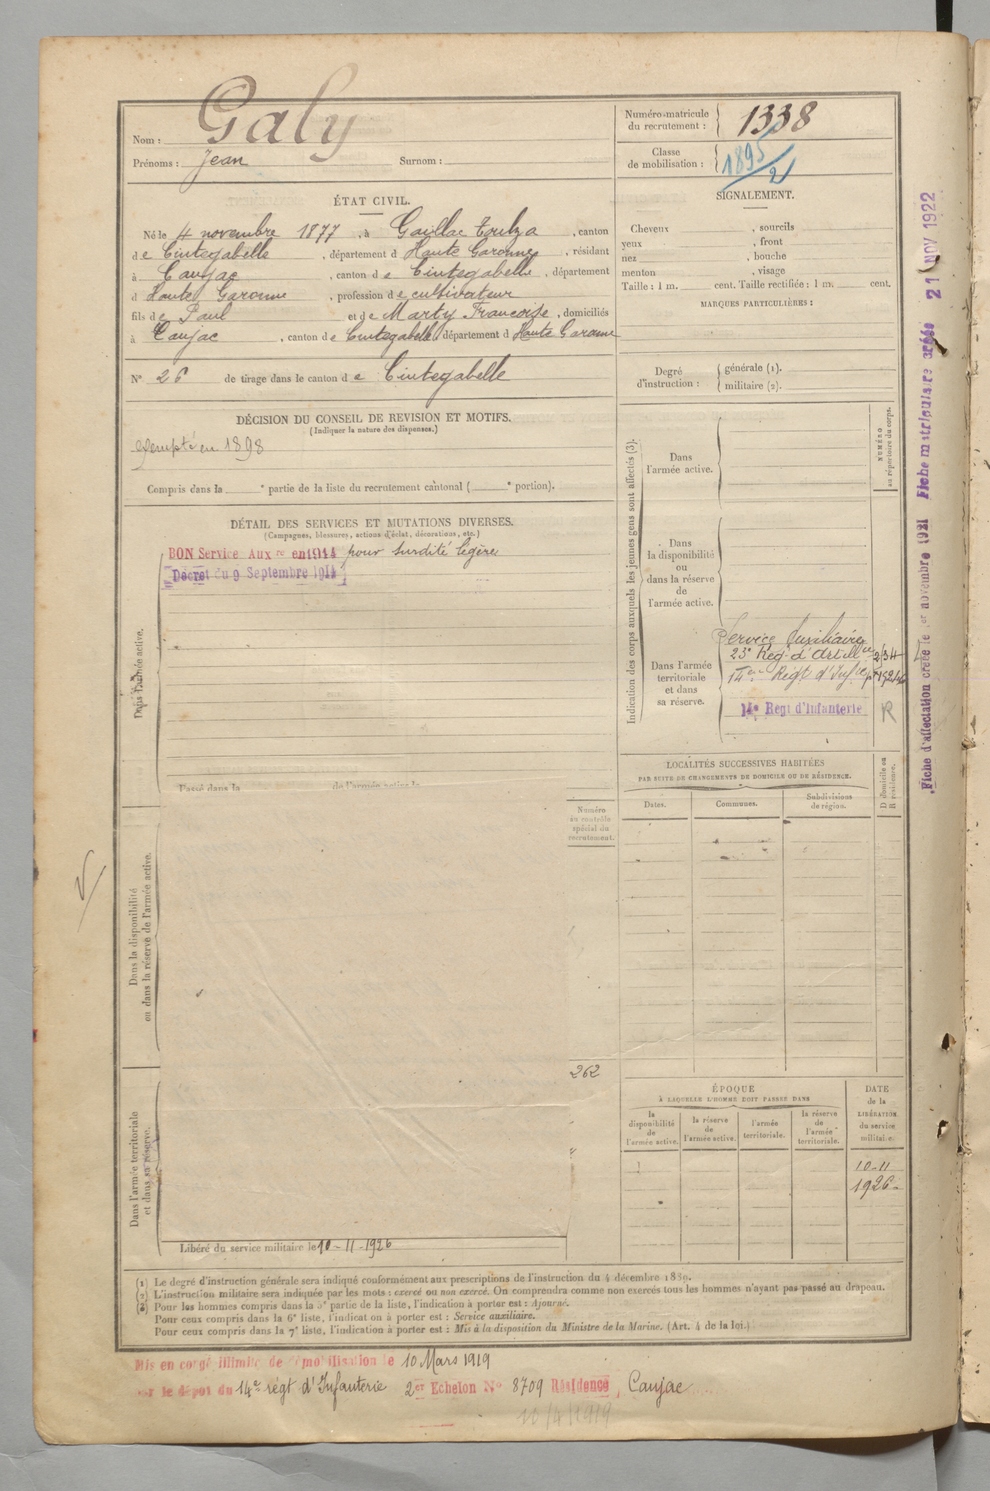 Nom : Galy
Prénoms : Jean Surnom :
Numéro-matricule du recrutement : 1338
Classe de mobilisation : 1895/2
ÉTAT CIVIL.
Né le 4 novembre 1877, à Gaillac Toulza, canton
de Cintegabelle, département d Haute Garonne, résidant
à Caujac, canton de Cintegabelle, département
d Haute Garonne, profession de cultivateur
fils de Paul et de Marty Françoise, domiciliés
à Caujac, canton de Cintegabelle département d Haute Garonne
N° 26 de tirage dans le canton de Cintegabelle
SIGNALEMENT.
Cheveux , sourcils
yeux , front
nez , bouche
menton , visage
Taille : 1 m. cent. Taille rectifiée : 1 m. cent.
MARQUES PARTICULIÈRES :
Degré d'instruction : générale (1).
militaire (2).
DÉCISION DU CONSEIL DE REVISION ET MOTIFS.
(Indiquer la nature des dispenses.)
exempté en 1898
Compris dans la e partie de la liste du recrutement cantonal ( e portion).
DÉTAIL DES SERVICES ET MUTATIONS DIVERSES.
(Campagnes, blessures, actions d'éclat, décorations, etc.)
BON Service Auxre en 1914 pour surdité légère
Décret du 9 Septembre 1914
Dans l'armée active.
Passé dans la de l'armée active le
Dans la disponibilité
ou dans la réserve de l'armée active.
Dans l'armée territoriale
et dans sa réserve.
Numéro
au contrôle
spécial du
recrutement.
262
Libéré du service militaire le 10-11-1926
Indication des corps auxquels les jeunes gens sont affectés (3).
NUMÉRO
au répertoire du corps.
Dans
l'armée active.
Dans
la disponibilité
ou
dans la réserve
de
l'armée active.
Dans l'armée
territoriale
et dans
sa réserve.
Service Auxiliaire
23e Reg. d'Artillie
14e Régt d'Infie
14e Régt d'Infanterie
R
LOCALITÉS SUCCESSIVES HABITÉES
PAR SUITE DE CHANGEMENTS DE DOMICILE OU DE RÉSIDENCE.
Dates. Communes. Subdivisions de région.
D domicile ou
R résidence.
ÉPOQUE
À LAQUELLE L'HOMME DOIT PASSER DANS
la disponibilité de l'armée active.
la réserve de l'armée active.
l'armée territoriale.
la réserve de l'armée territoriale.
DATE
de la
LIBÉRATION
du service
militaire.
10-11
1926
(1) Le degré d'instruction générale sera indiqué conformément aux prescriptions de l'instruction du 4 décembre 1889.
(2) L'instruction militaire sera indiquée par les mots : exercé ou non exercé. On comprendra comme non exercés tous les hommes n'ayant pas passé au drapeau.
(3) Pour les hommes compris dans la 5e partie de la liste, l'indication à porter est : Ajourné.
Pour ceux compris dans la 6e liste, l'indication à porter est : Service auxiliaire.
Pour ceux compris dans la 7e liste, l'indication à porter est : Mis à la disposition du Ministre de la Marine. (Art. 4 de la loi.)
Mis en congé illimité de démobilisation le 10 Mars 1919
par le dépôt du 14e régt d'Infanterie 2er Echelon N° 8709 Résidence, Caujac
10/4/1919
Fiche d'affectation créée le 1er novembre 1921 Fiche matriculaire créée 21 NOV 1922